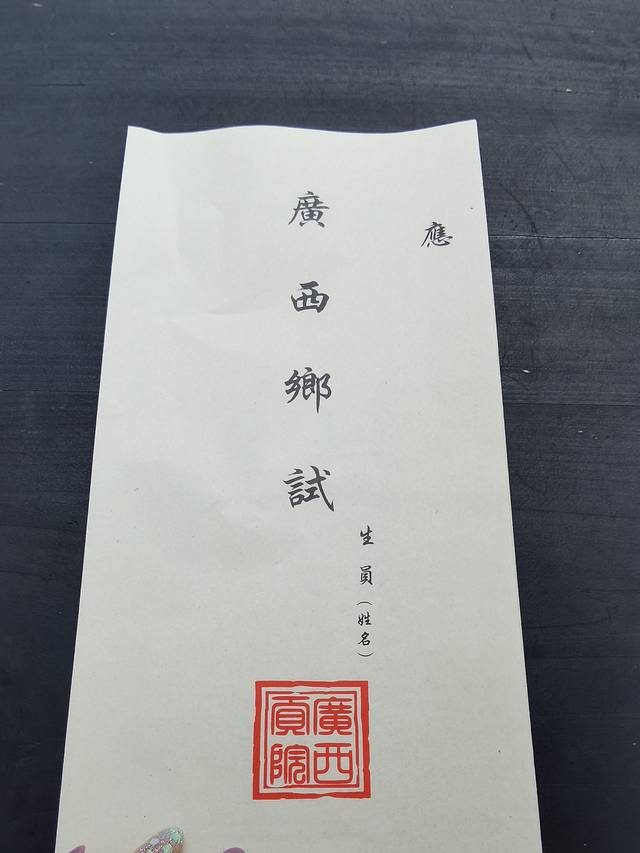 應
廣西鄉試
生員（姓名）
廣西
貢院